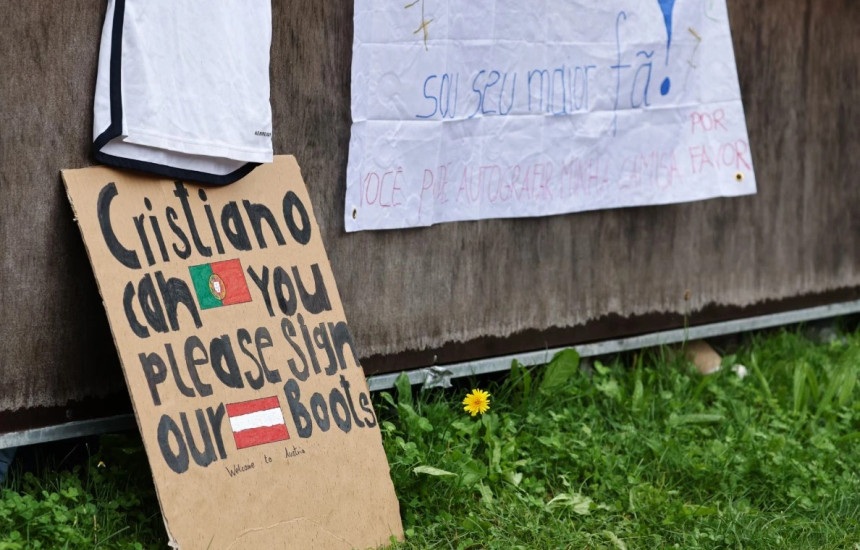 Cristiano
can You
please sign
our Boots
Welcome to Austria
sou seu maior fã!
POR
VOCÊ PODE AUTOGRAFAR MINHA CAMISA FAVOR